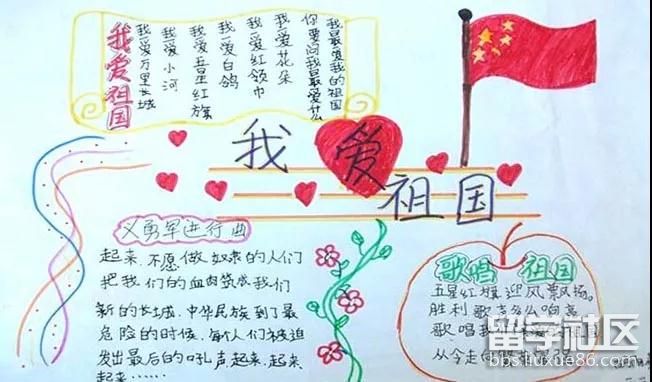 我爱祖国
我爱万里长城
我爱小河
我爱五星红旗
我爱白鸽
我爱红领巾
我爱花朵
你要问我最爱什么
我最爱我的祖国
我爱祖国
义勇军进行曲
起来.不愿做奴隶的人们
把我们的血肉筑成我们
新的长城,中华民族到了最
危险的时候,每个人们被迫
发出最后的吼声起来,起来
起来……
歌唱 祖国
五星红旗迎风飘扬。
胜利歌声多么响亮
歌唱我 祖国
从今走向
留学社区
bbs.liuxue86.com